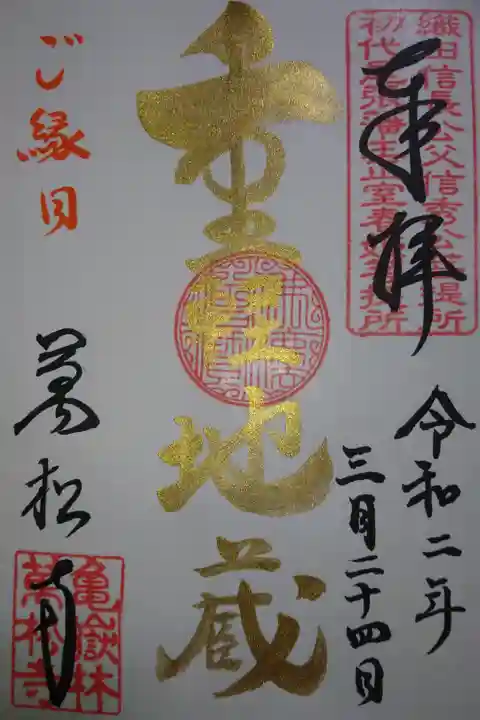 織田信長公父信秀公菩提所
初代尾張藩主正室春姫菩提所
奉拝
令和二年
三月二十四日
重軽地蔵
ご縁日
萬松寺
亀嶽林
萬松寺